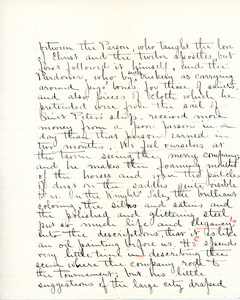 between the Parson, who taught the love
of Christ and the twelve apostles, but
first followed it himself, and the
Pardoner, who by trickery as carrying
around pigs' bones for those of saints,
and also pieces of cloth which he
pretended were from the sail of
Saint Peter's ship, received more
money from a poor person in a
day than that person earned in
two months. We feel ourselves at
the tavern seeing the merry company
and he makes the foaming
of the horses and even the particles
of dust on the saddles quite visible
to us. In the Knight's tale, the brilliant
coloring, the silks and satins and
the polished and glittering steel
put so much life and elegance
into the descriptions, that it is like
an oil painting before us. He spends
very little time in describing the
scene where the company rode to
the tournament; but his little
suggestions of the large city, draped